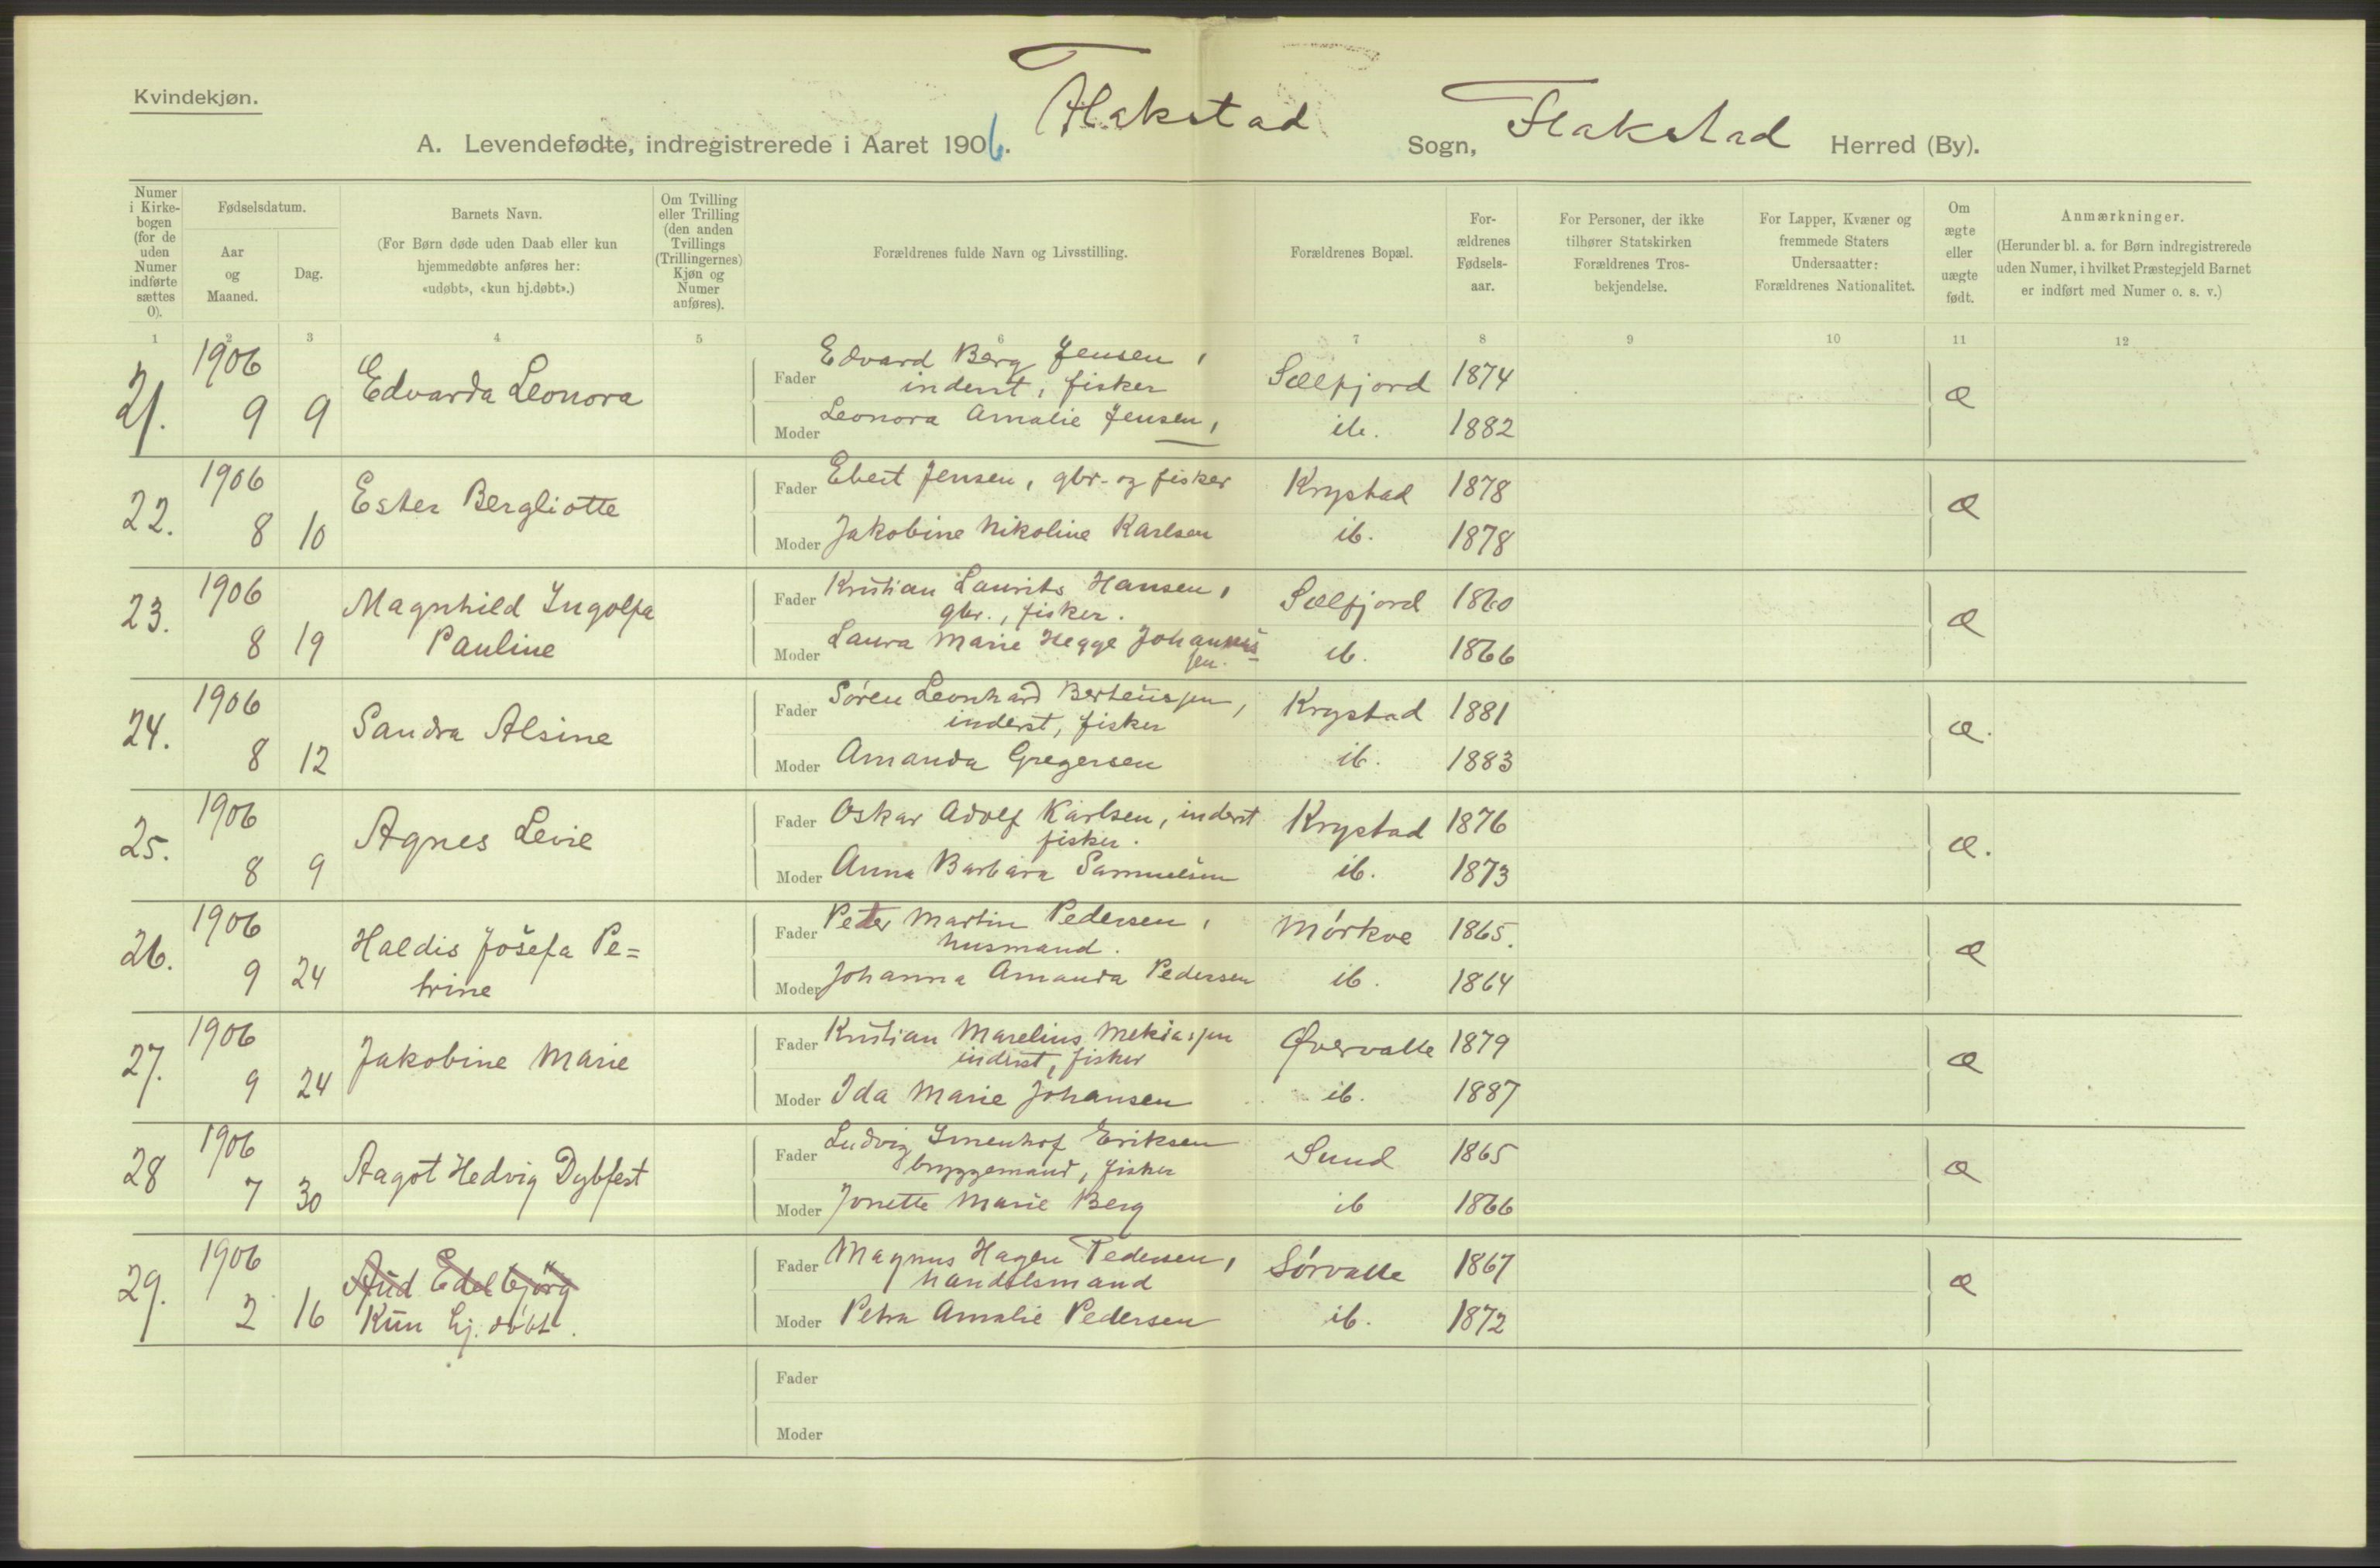 Kvindekjøn.
A. Levendefødte, indregistrerede i Aaret 1906. Flakstad Sogn, Flakstad Herred (By).
Numer i Kirkebogen (for de uden Numer indførte sættes 0).
Fødselsdatum.
Aar og Maaned.
Dag.
Barnets Navn.
(For Børn døde uden Daab eller kun
hjemmedøbte anføres her:
«udøbt», «kun hj.døbt».)
Om Tvilling
eller Trilling
(den anden
Tvillings
(Trillingernes)
Kjøn og
Numer
anføres).
Forældrenes fulde Navn og Livsstilling.
Forældrenes Bopæl.
For-
ældrenes
Fødsels-
aar.
For Personer, der ikke
tilhører Statskirken
Forældrenes Tros-
bekjendelse.
For Lapper, Kvæner og
fremmede Staters
Undersaatter:
Forældrenes Nationalitet.
Om
ægte
eller
uægte
født.
Anmærkninger.
(Herunder bl. a. for Børn indregistrerede
uden Numer, i hvilket Præstegjeld Barnet
er indført med Numer o. s. v.)
1 2 3 4 5 6 7 8 9 10 11 12
21. 1906 9 9 Edvarda Leonora
Fader Edvard Berg Jensen,
inderst, fisker Sælfjord 1874 æ
Moder Leonora Amalie Jensen, ib. 1882
22. 1906 8 10 Ester Bergliotte
Fader Ebert Jensen, gbr- og fisker Krystad 1878 æ
Moder Jakobine Nikoline Karlsen ib. 1878
23. 1906 8 19 Magnhild Ingolfa
Pauline
Fader Kristian Laurits Hansen,
gbr., fisker. Sælfjord 1860 æ
Moder Laura Marie Hegge Johannes-
sen. ib. 1866
24. 1906 8 12 Sandra Alsine
Fader Søren Leonhard Berteussen,
inderst, fisker Krystad 1881 æ.
Moder Amanda Gregersen ib. 1883
25. 1906 8 9 Agnes Levie
Fader Oskar Adolf Karlsen, inderst
fisker. Krystad 1876 æ.
Moder Anna Barbara Samuelsen ib. 1873
26. 1906 9 24 Haldis Josefa Pe=
trine
Fader Peter Martin Pedersen,
husmand. Mørkve 1865. æ
Moder Johanna Amanda Pedersen ib. 1864
27. 1906 9 24 Jakobine Marie
Fader Kristian Marelius Mekiassen
inderst, fisker Øvervalle 1879 æ
Moder Ida Marie Johansen ib. 1887
28 1906 7 30 Aagot Hedvig Dybfest
Fader Ludvig Eriksen
bryggemand, fisker Sund 1865 æ
Moder Jonette Marie Berg ib 1866
29. 1906 2 16 Aud Edel bjørg
Kun hj. døbt.
Fader Magnus Hagen Pedersen,
handelsmand Sørvalle 1867 æ
Moder Petra Amalie Pedersen ib. 1872
Fader
Moder